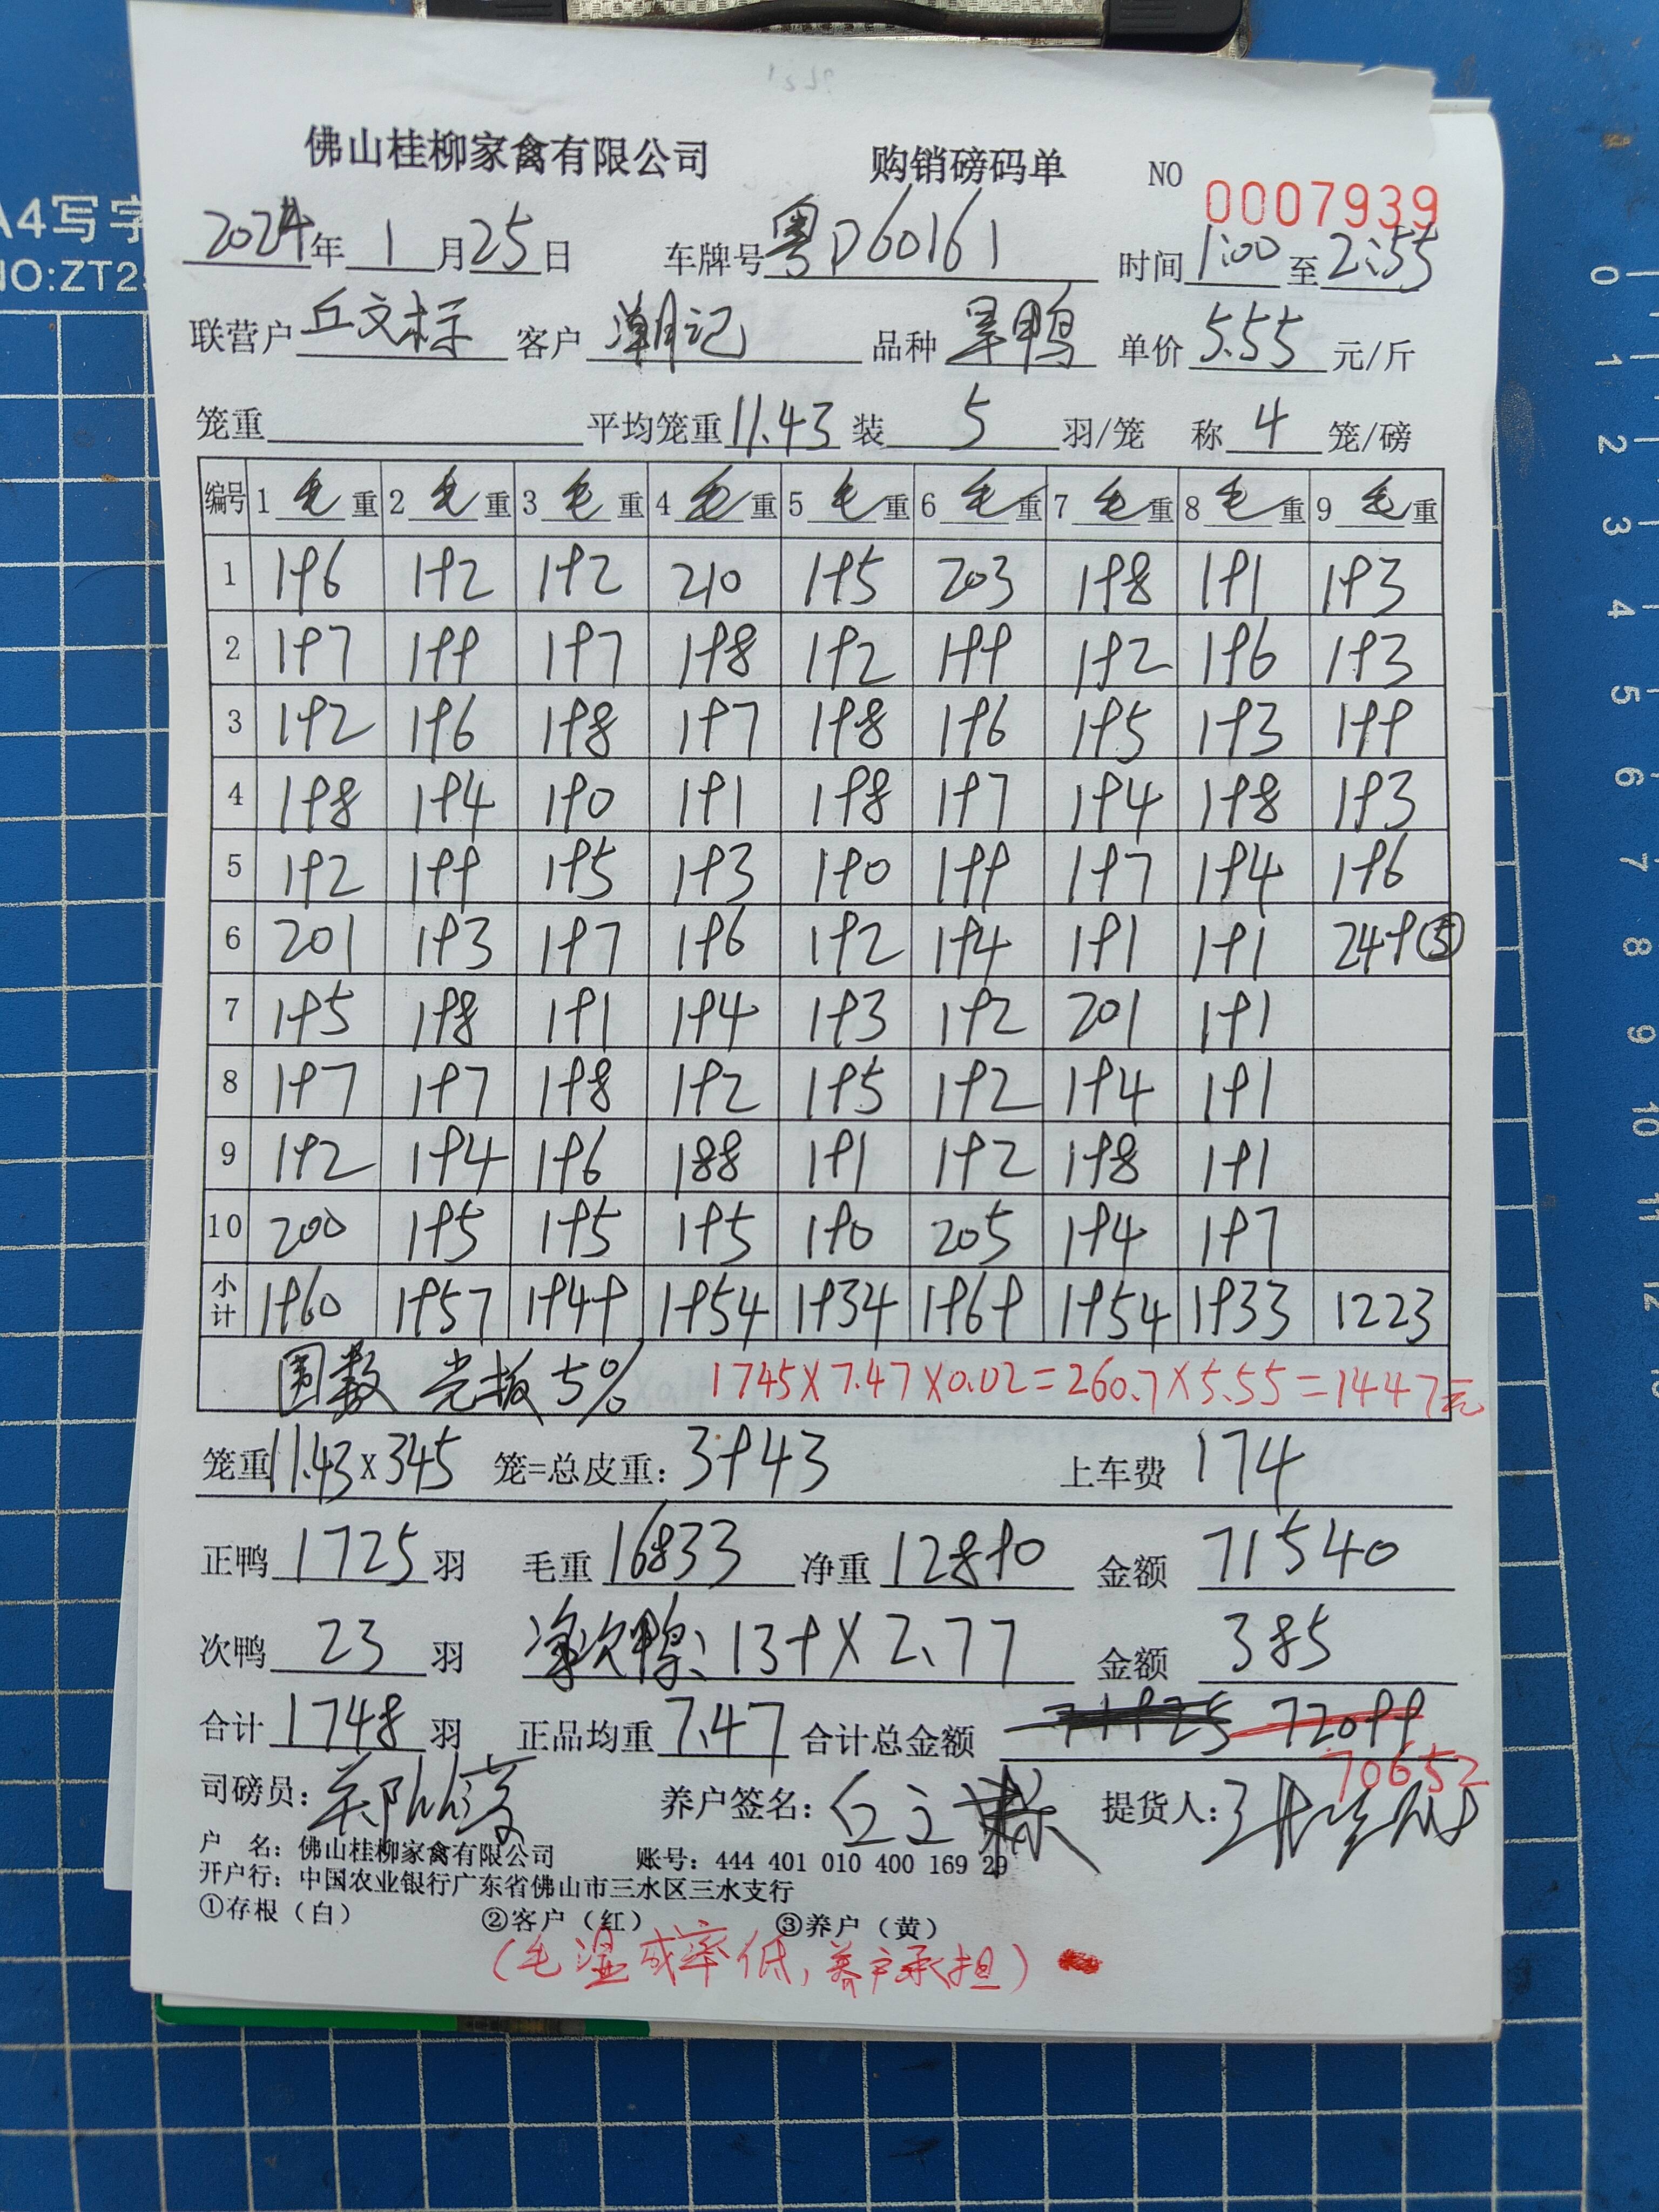 A4写字
NO:ZT2
佛山桂柳家禽有限公司 购销磅码单 NO 0007939
2024年1月25日 车牌号粤D60161 时间1:00至2:55
联营户丘文标 客户潮记 品种旱鸭 单价5.55元/斤
笼重 平均笼重11.43 装5羽/笼 称4笼/磅
编号 1毛重 2毛重 3毛重 4毛重 5毛重 6毛重 7毛重 8毛重 9毛重
1 196 192 192 210 195 203 198 191 193
2 197 199 197 198 192 199 192 196 193
3 192 196 198 197 198 196 195 193 199
4 198 194 190 191 198 197 194 198 193
5 192 199 195 193 190 199 197 194 196
6 201 193 197 196 192 194 191 191 249⑤
7 195 198 191 194 193 192 201 191
8 197 197 198 192 195 192 194 191
9 192 194 196 188 191 192 198 191
10 200 195 195 195 190 205 194 197
小计 1960 1957 1949 1954 1934 1969 1954 1933 1223
围数 党振5% 1745×7.47×0.02=260.7×5.55=1447元
笼重11.43×345 笼=总皮重:3943 上车费 174
正鸭1725羽 毛重16833 净重12890 金额71540
次鸭23羽 净次鸭:139×2.77 金额385
合计1748羽 正品均重7.47 合计总金额 71925 72099
70652
司磅员: 养户签名: 提货人:
户 名:佛山桂柳家禽有限公司 账号:444 401 010 400 169 29
开户行:中国农业银行广东省佛山市三水区三水支行
①存根（白） ②客户（红） ③养户（黄）
(毛湿成率低,养户承担)
0
1
2
3
4
5
6
7
8
9
10
11
12